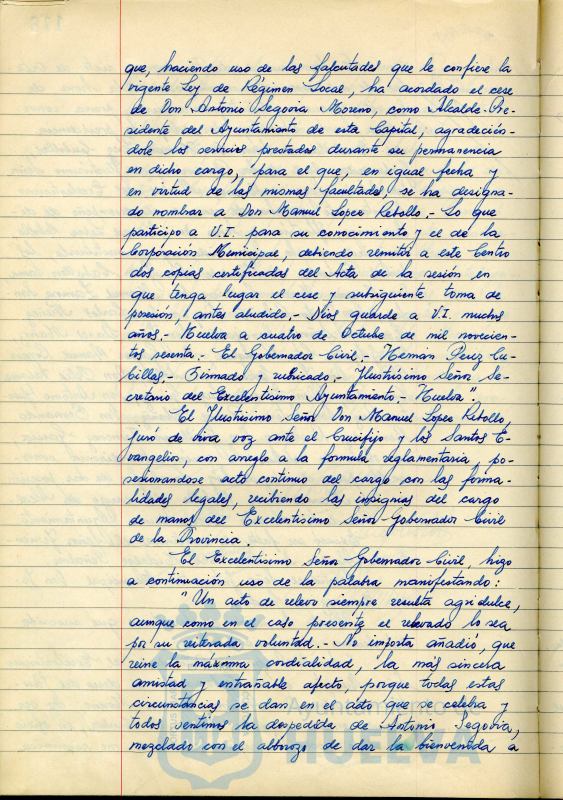 que, haciendo uso de las falcutades que le confiere la
vigente Ley de Régimen Local, ha acordado el cese
de Don Antonio Segovia Moreno, como Alcalde-Pre-
sidente del Ayuntamiento de esta Capital, agradecién-
dole los servicios prestados durante su permanencia
en dicho cargo, para el que, en igual fecha y
en virtud de las mismas facultades se ha designa-
do nombrar a Don Manuel Lopez Rebollo.- Lo que
participo a V.I. para su conocimiento y el de la
Corporación Municipal, debiendo remitir a este Centro
dos copias certificadas del Acta de la sesión en
que tenga lugar el cese y subsiguiente toma de
posesión, antes aludido.- Dios guarde a V.I. muchos
años.- Huelva a cuatro de Octubre de mil novecien-
tos sesenta.- El Gobernador Civil.- Hernán Perez Cu-
billas.- Firmado y rubricado.- Ilustrísimo Señor Se-
cretario del Excelentísimo Ayuntamiento.- Huelva".
El Ilustrisimo Señor Don Manuel Lopez Rebollo,
juró de viva voz ante el Crucifijo y los Santos E-
vangelios, con arreglo a la formula reglamentaria, po-
sesionandose acto continuo del cargo con las forma-
lidades legales, recibiendo las insignias del cargo
de manos del Excelentisimo Señor Gobernador Civil
de la Provincia.
El Excelentisimo Señor Gobernador Civil, hizo
a continuación uso de la palabra manifestando:
"Un acto de relevo siempre resulta agridulce,
aunque como en el caso presente el relevado lo sea
por su reiterada voluntad.- No importa añadió, que
reine la máxima cordialidad, la más sincera
amistad y entrañable afecto, porque todas estas
circunstancias se dan en el acto que se celebra y
todos sentimos la despedida de Antonio Segovia,
mezclado con el alborozo de dar la bienvenida a
HUELVA